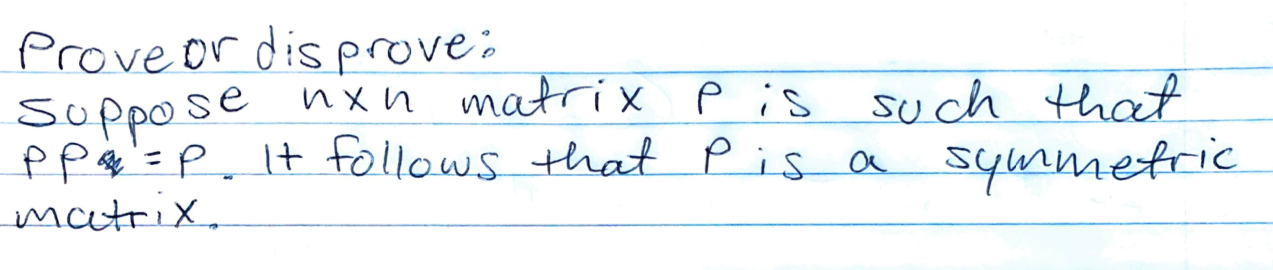 Prove or disprove:
Suppose nxn matrix P is such that
PP = P. It follows that P is a symmetric
matrix.